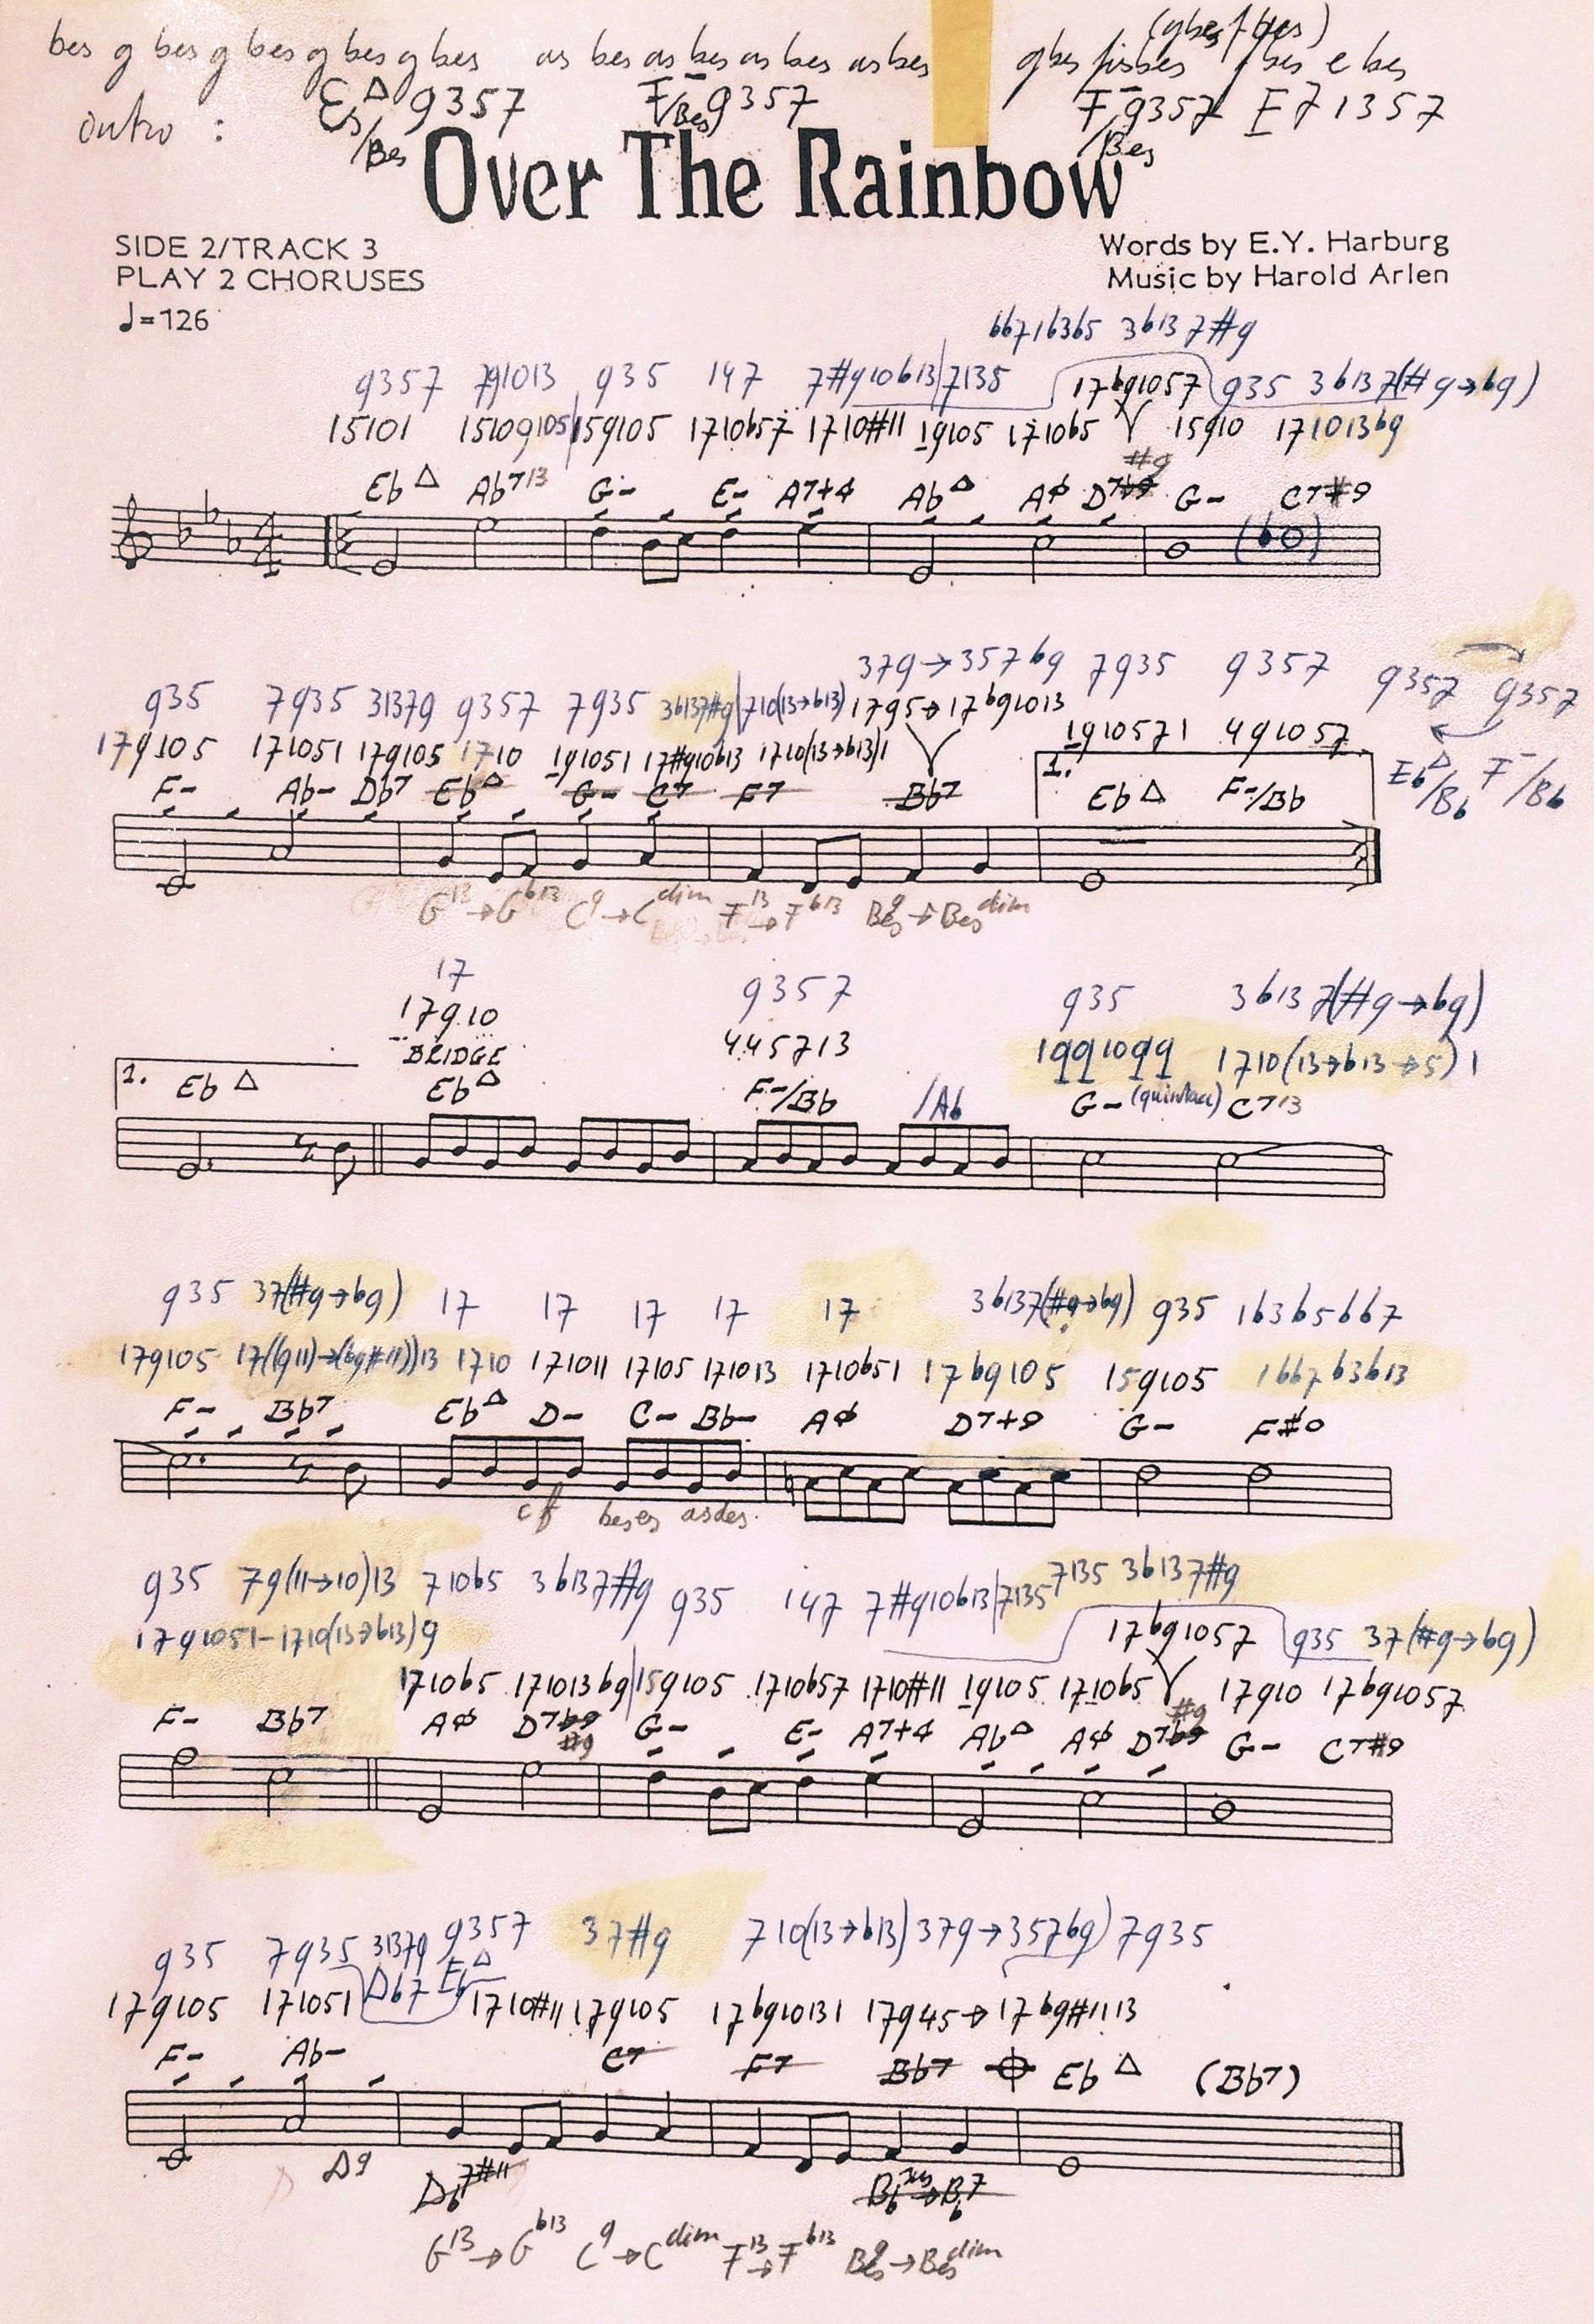 bes g bes g bes g bes g bes as bes as bes as bes as bes g bes fis bes g bes e bes
outro : Es△/Bes 9357 F-/Bes 9357 F-/Bes 9357 E7 1357
Over The Rainbow
SIDE 2/TRACK 3
PLAY 2 CHORUSES
♩=126
Words by E.Y. Harburg
Music by Harold Arlen
bb71b3b5 3b137#9
9357 791013 935 147 7#910b13|7135 17b91057 935 3b137(#9→b9)
15101 15109105|159105 1710b57 1710#11 19105 1710b5 15910 171013b9
#9
Eb△ Ab713 G- E- A7+4 Ab△ Aø D7b9 G- C7#9
(bo)
379→357b9 7935 9357 9357 9357
935 7935 31379 9357 7935 3b137#9|710(13→b13) 1795→17b91013
179105 171051 179105 1710 191051 17#910b13 1710(13→b13)1 1910571 491057
F- Ab- Db7 Eb△ G- C7 F7 Bb7 1. Eb△ F-/Bb Eb△/Bb F-/Bb
G13→Gb13 C9→Cdim F13→Fb13 Bes9→Besdim
17 9357 935 3b137(#9→b9)
17910 445713 1991099 1710(13→b13→5)1
BRIDGE
2. Eb△ Eb△ F-/Bb /Ab G- C713
935 37(#9→b9) 17 17 17 17 17 3b137(#9→b9) 935 1b3b5bb7
179105 17((911)→(b9#11))13 1710 171011 17105 171013 1710b51 17b9105 159105 1bb7b3b13
F- Bb7 Eb△ D- C- Bb- Aø D7+9 G- F#o
cf beses asdes
935 79(11→10)13 710b5 3b137#9 935 147 7#910b13|7135 7135 3b137#9
1791051-1710(13→b13)9 17b91057 935 37(#9→b9)
1710b5 171013b9|159105 1710b57 1710#11 19105 1710b5 17910 17b91057
F- Bb7 Aø D7b9 #9 G- E- A7+4 Ab△ Aø D7b9 #9 G- C7#9
935 7935 31379 9357 37#9 710(13→b13) 379→357b9) 7935
Db7 Eb△
179105 171051 1710#11 179105 17b910131 17945→17b9#1113
F- Ab- C7 F7 Bb7 Eb△ (Bb7)
D9 Db7#11 Bbsus→Bb7
G13→Gb13 C9→Cdim F13→Fb13 Bes9→Besdim